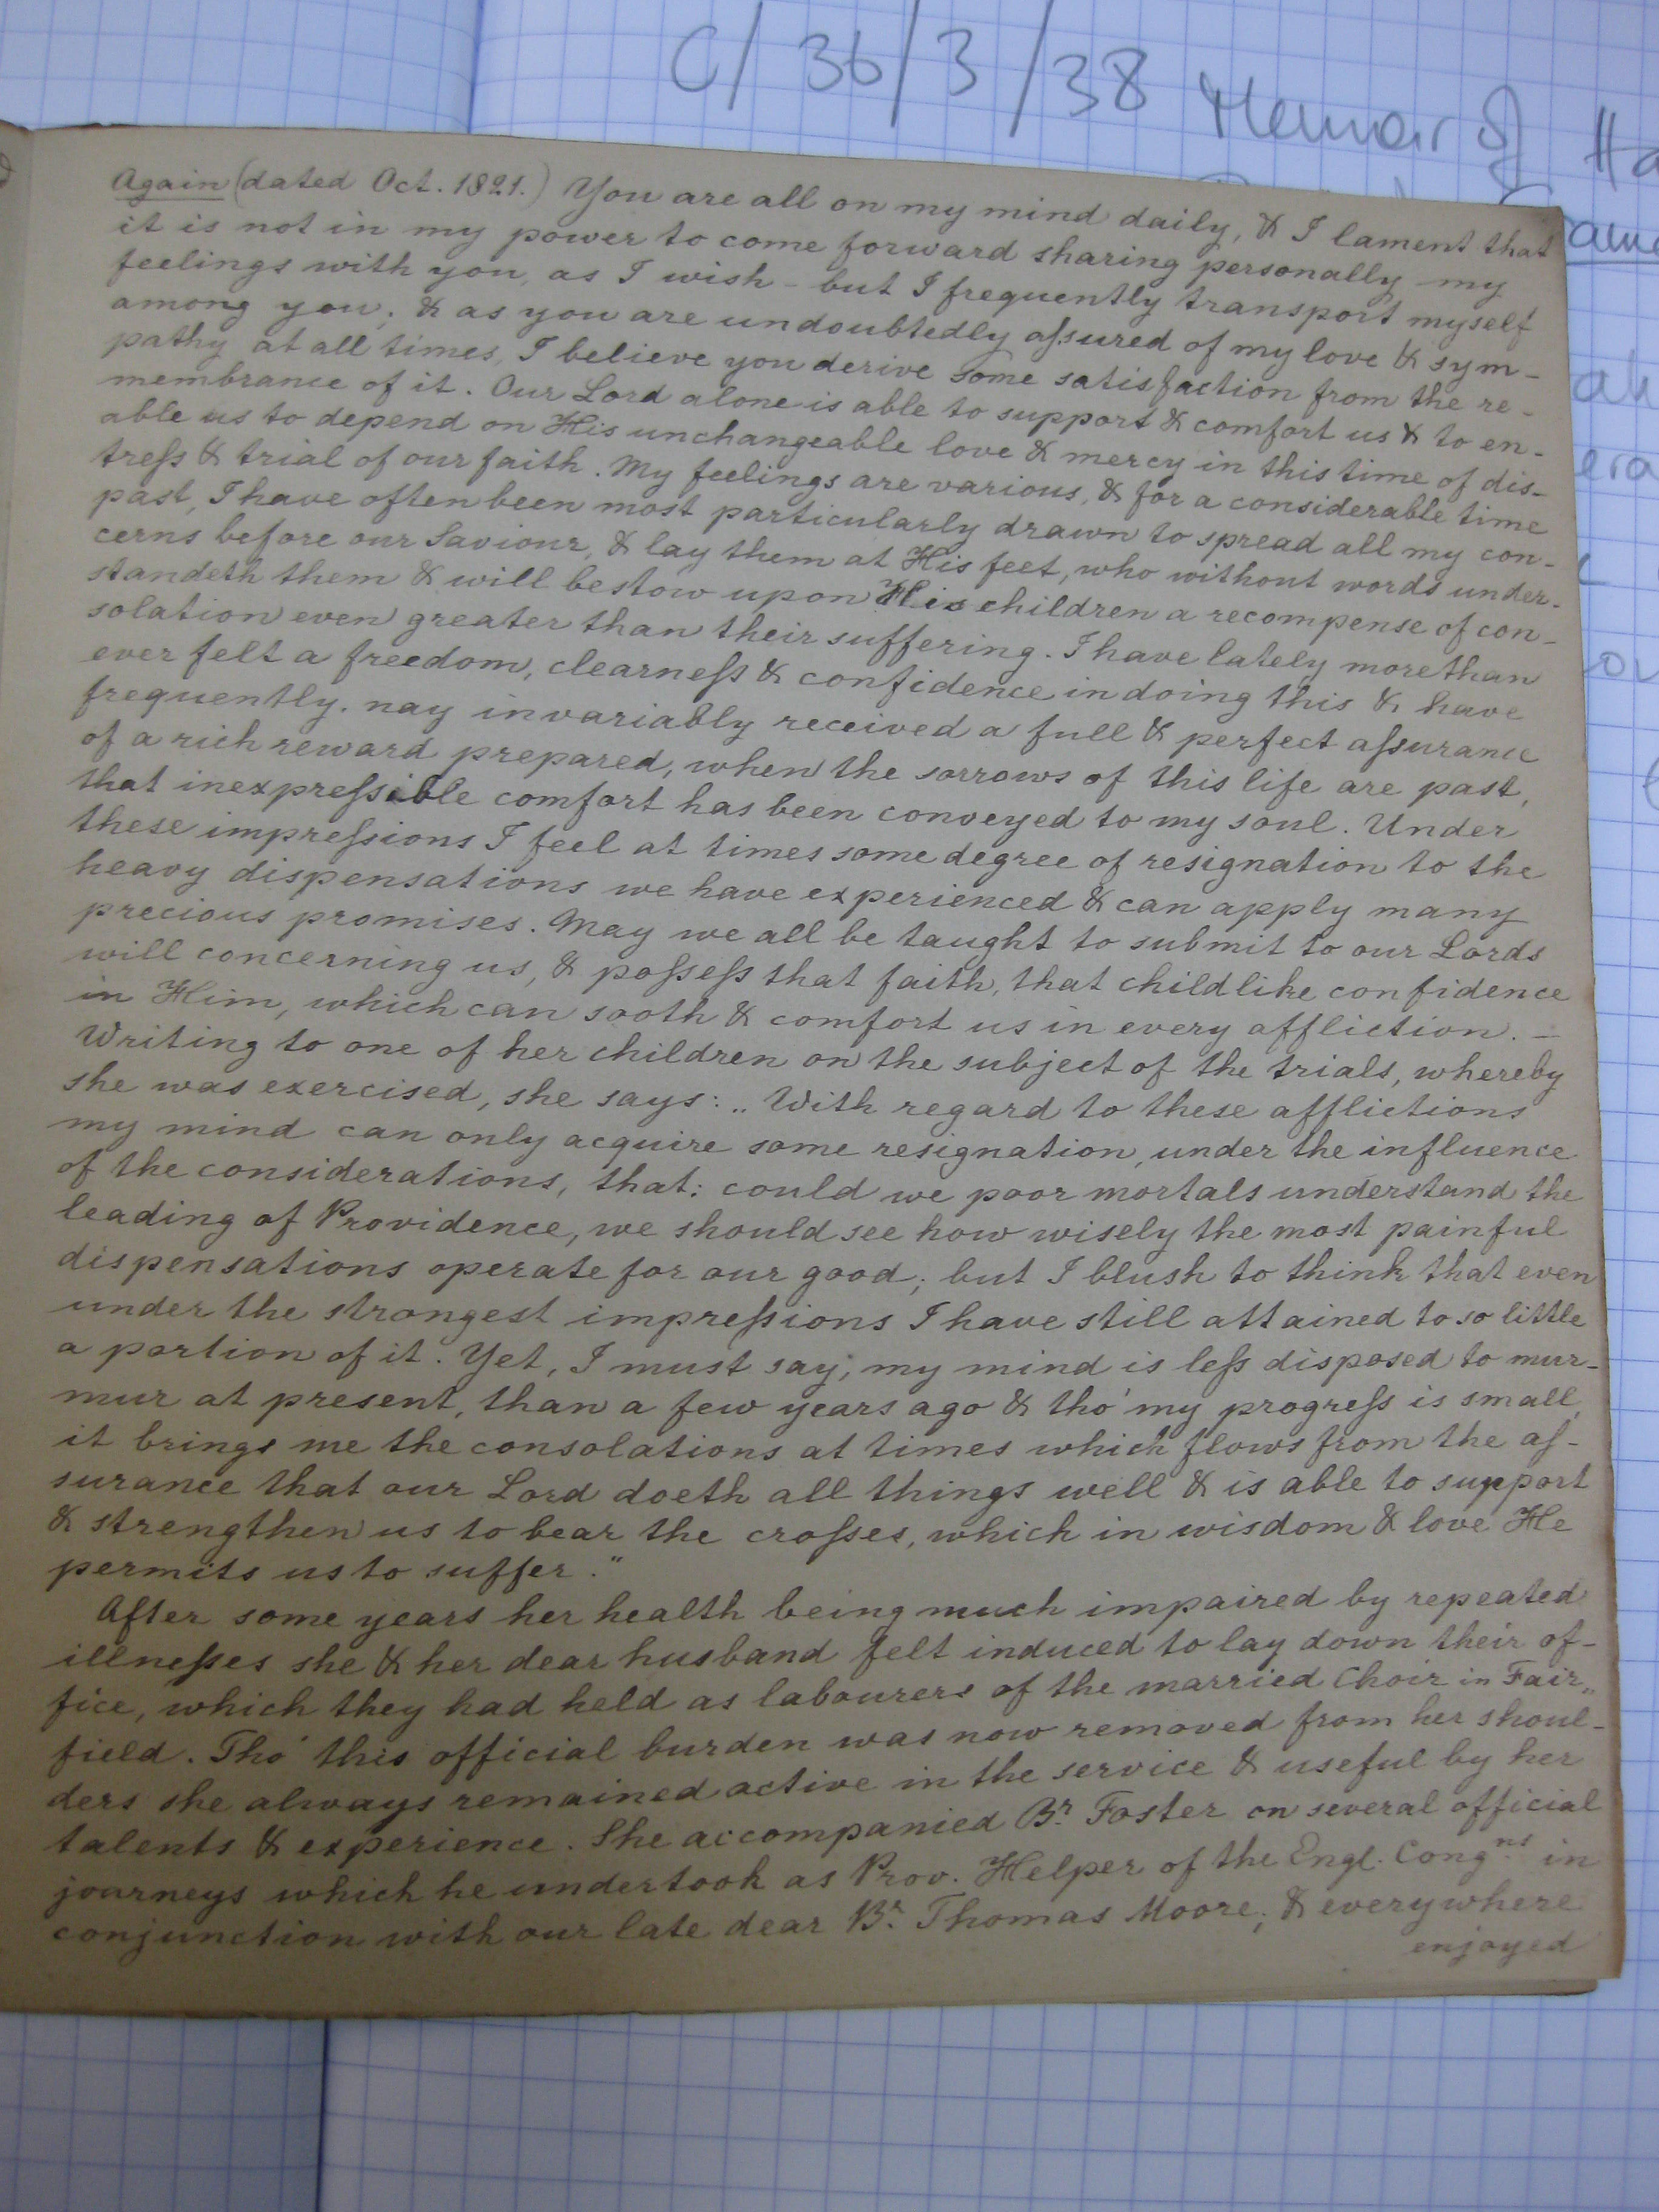 C/36/3/38 Memoir of Ha
Again (dated Oct. 1821.) You are all on my mind daily, & I lament that
it is not in my power to come forward sharing personally my
feelings with you, as I wish – but I frequently transport myself
among you; & as you are undoubtedly aſsured of my love & sym-
pathy at all times, I believe you derive some satisfaction from the re-
membrance of it. Our Lord alone is able to support & comfort us & to en-
able us to depend on His unchangeable love & mercy in this time of dis-
treſs & trial of our faith. My feelings are various, & for a considerable time
past, I have often been most particularly drawn to spread all my con-
cerns before our Saviour, & lay them at His feet, who without words under-
standeth them & will bestow upon His children a recompense of con-
solation even greater than their suffering. I have lately more than
ever felt a freedom, clearneſs & confidence in doing this & have
frequently. nay invariably received a full & perfect aſsurance
of a rich reward prepared, when the sorrows of this life are past,
that inexpreſsible comfort has been conveyed to my soul. Under
these impreſsions I feel at times some degree of resignation to the
heavy dispensations we have experienced & can apply many
precious promises. May we all be taught to submit to our Lords
will concerning us, & poſseſs that faith, that childlike confidence
in Him, which can sooth & comfort us in every affliction. –
Writing to one of her children on the subject of the trials, whereby
she was exercised, she says: „With regard to these afflictions
my mind can only acquire some resignation, under the influence
of the considerations, that: could we poor mortals understand the
leading of Providence, we should see how wisely the most painful
dispensations operate for our good; but I blush to think that even
under the strongest impreſsions I have still attained to so little
a portion of it. Yet, I must say, my mind is leſs disposed to mur-
mur at present, than a few years ago & tho' my progreſs is small,
it brings me the consolations at times which flows from the aſ-
surance that our Lord doeth all things well & is able to support
& strengthen us to bear the croſses, which in wisdom & love He
permits us to suffer."
After some years her health being much impaired by repeated
illneſses she & her dear husband felt induced to lay down their of-
fice, which they had held as labourers of the married Choir in Fair„
field. Tho' this official burden was now removed from her shoul-
ders she always remained active in the service & useful by her
talents & experience. She accompanied Br. Foster on several official
journeys which he undertook as Prov. Helper of the Engl. Congns in
conjunction with our late dear Br. Thomas Moore; & everywhere
enjoyed